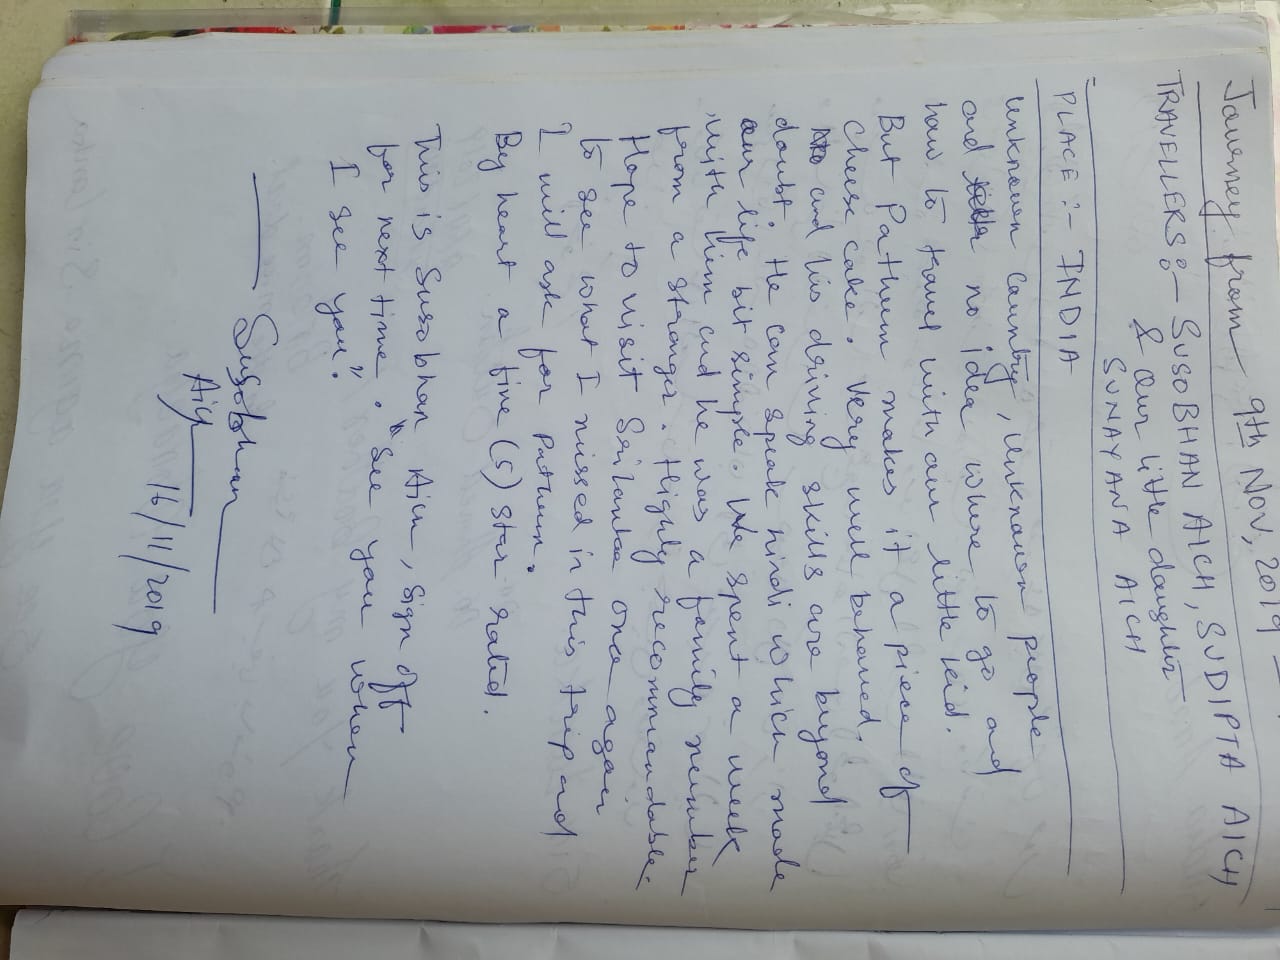 Journey from 9th Nov, 2019
TRAVELLERS:- SUSOBHAN AICH, SUDIPTA AICH
& Our little daughter
SUNAYANA AICH
PLACE :- INDIA
Unknown Country, Unknown people
and no idea where to go and
how to travel with our little kid.
But Pathum makes it a piece of
cheese cake. Very well behaved.
and his driving skills are beyond
doubt. He can speak hindi which made
our life bit simple. We spent a week
with him and he was a family member
from a stranger. Highly recommandable.
Hope to visit Srilanka once again
to see what I missed in this trip and
I will ask for Pathum.
By heart a five (5) star rated.
This is Susobhan Aich, Sign off
for next time. "See you when
I see you".
Susobhan
Aich
16/11/2019